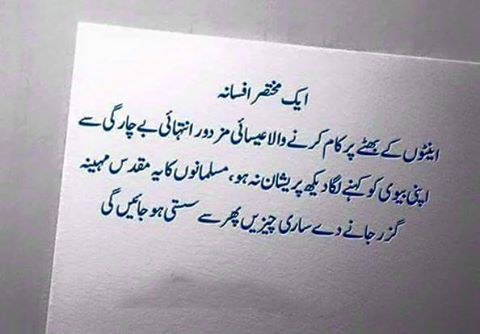 ایک مختصر افسانہ
اینٹوں کے بھٹے پر کام کرنے والا عیسائی مزدور انتہائی بے چارگی سے
اپنی بیوی کو کہنے لگا دیکھ پریشان نہ ہو، مسلمانوں کا یہ مقدس مہینہ
گزر جانے دے ساری چیزیں پھر سے سستی ہو جائیں گی